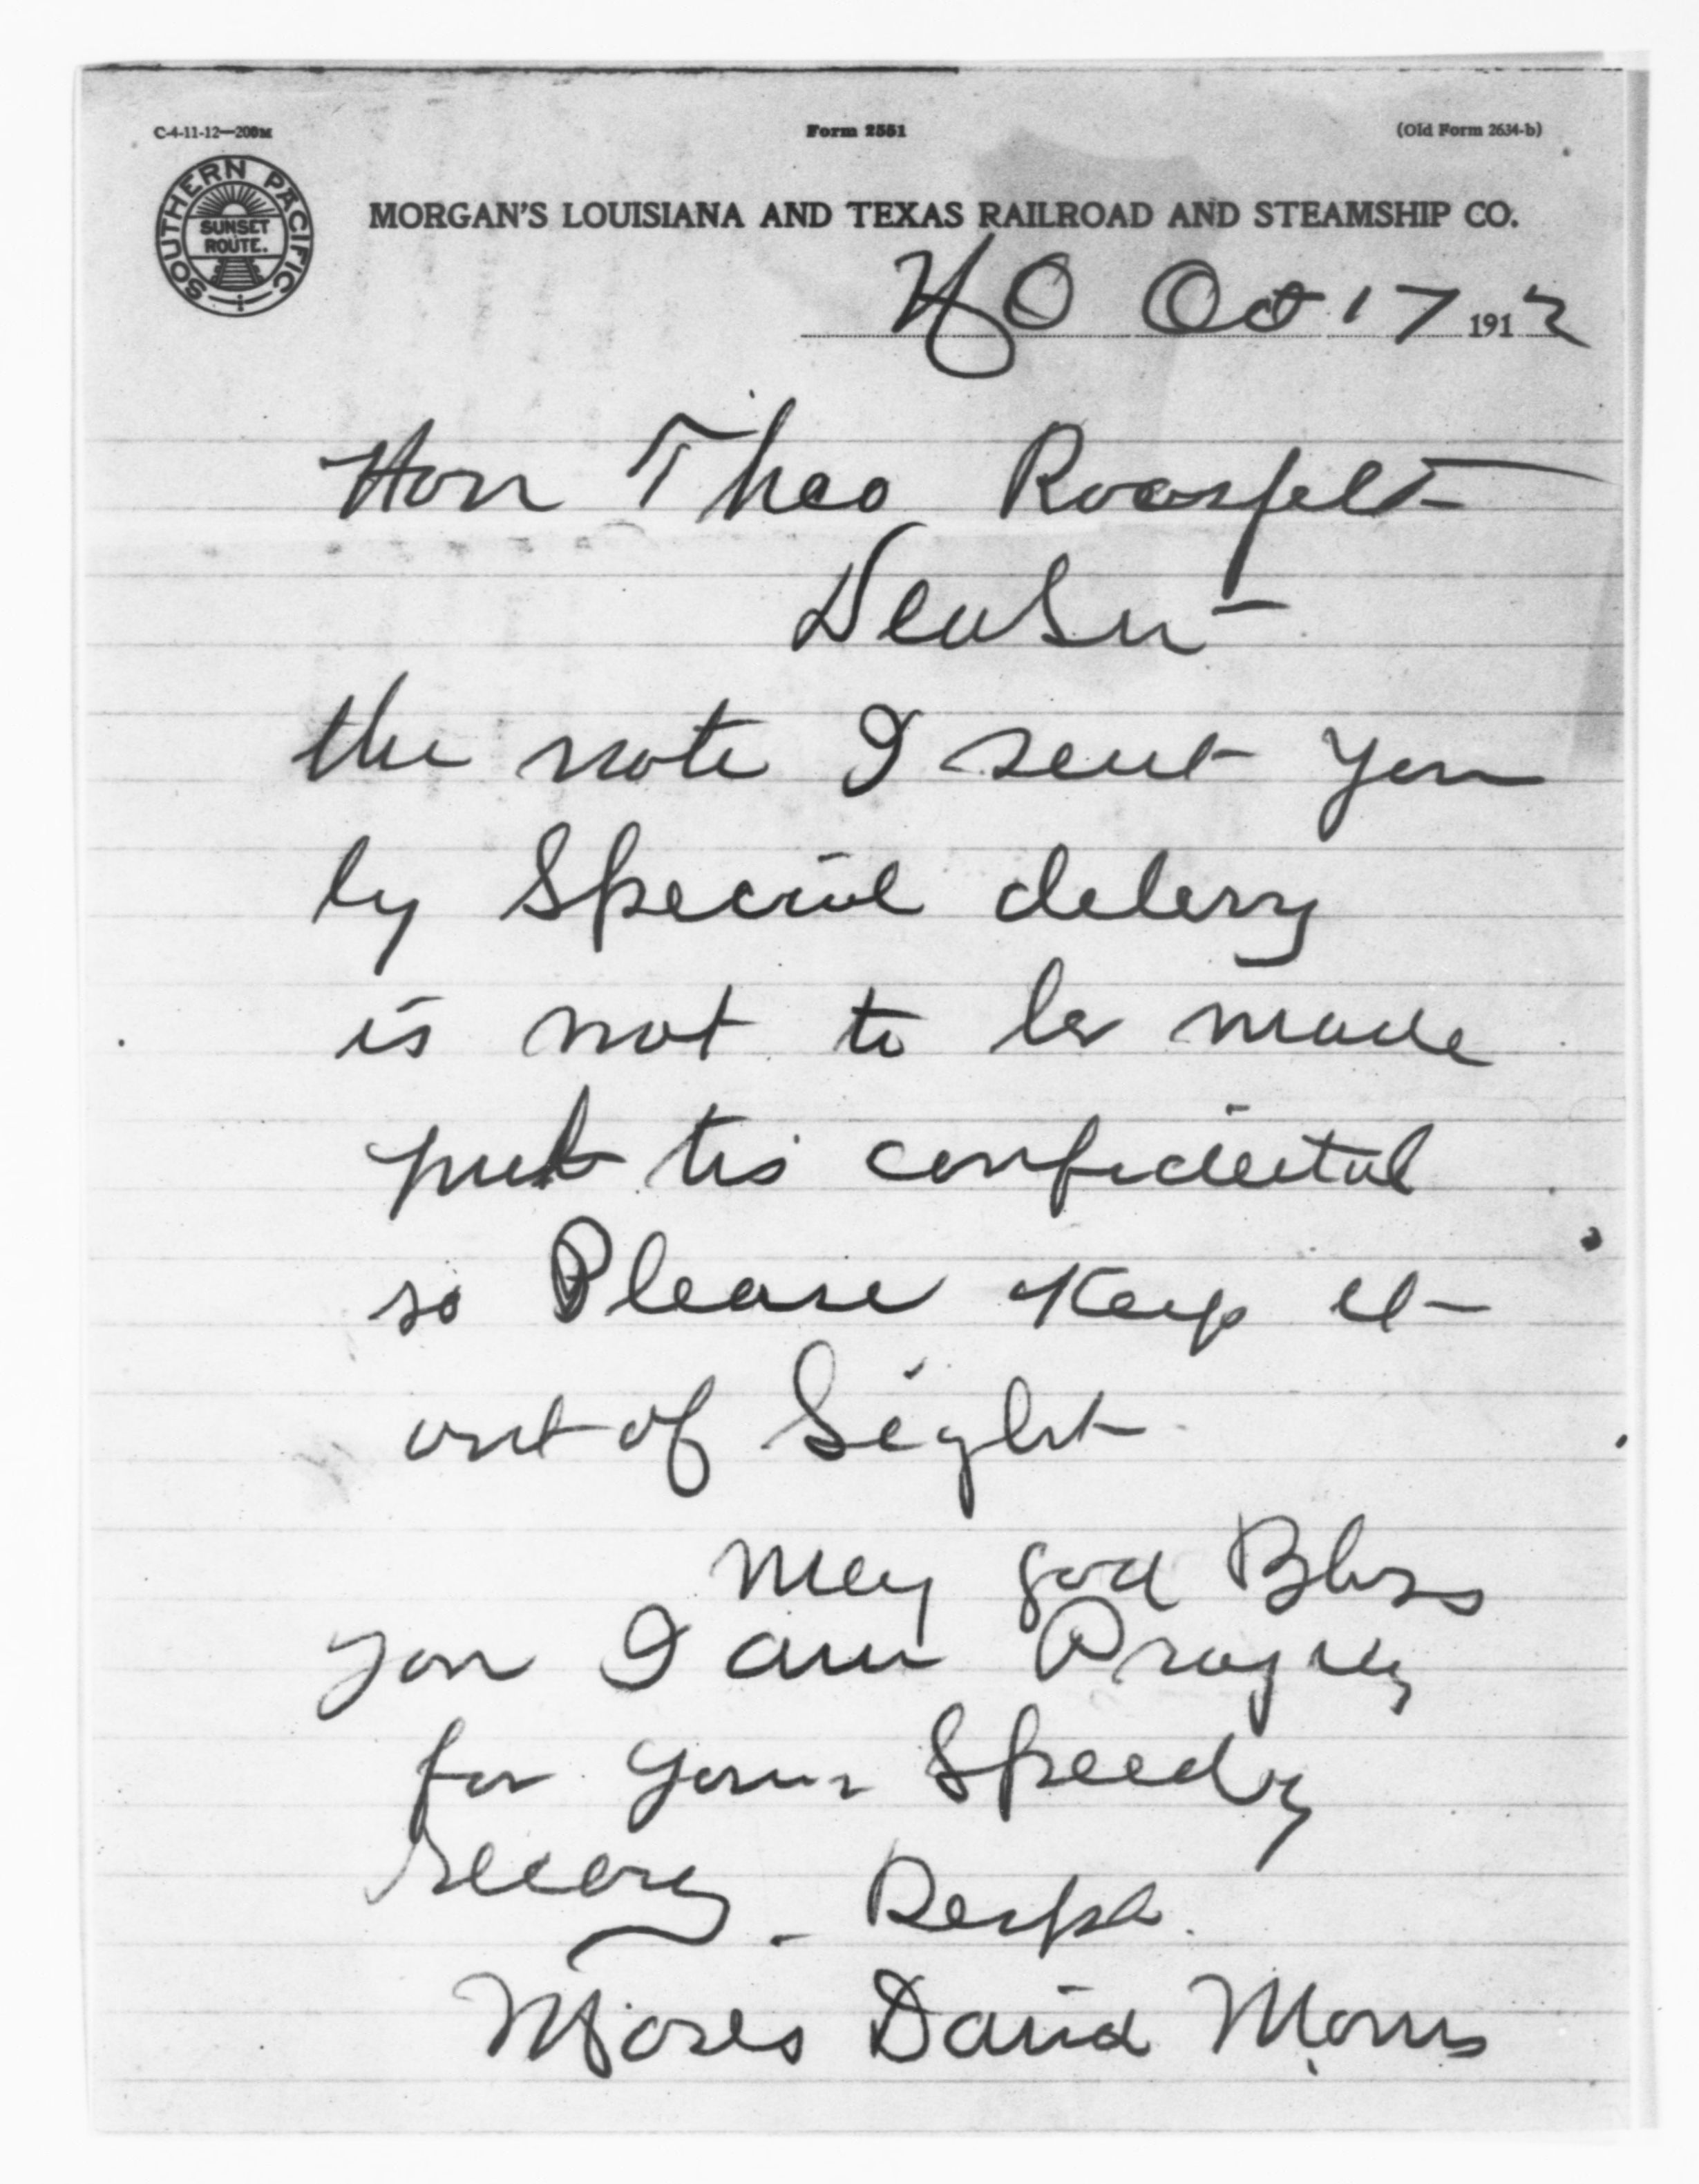 C-4-11-12—200M Form 2551 (Old Form 2634-b)
SOUTHERN PACIFIC
SUNSET
ROUTE.
MORGAN'S LOUISIANA AND TEXAS RAILROAD AND STEAMSHIP CO.
NO Oct 17 1912
Hon Theo Roosfelt
Dear Sir—
the note I sent you
by Special delery
is not to be made
pub tis confidental
so Please Keep it
out of Sight
May god Bless
you I am Praying
for your Speedy
recovry - Respt.
Moses David Morris